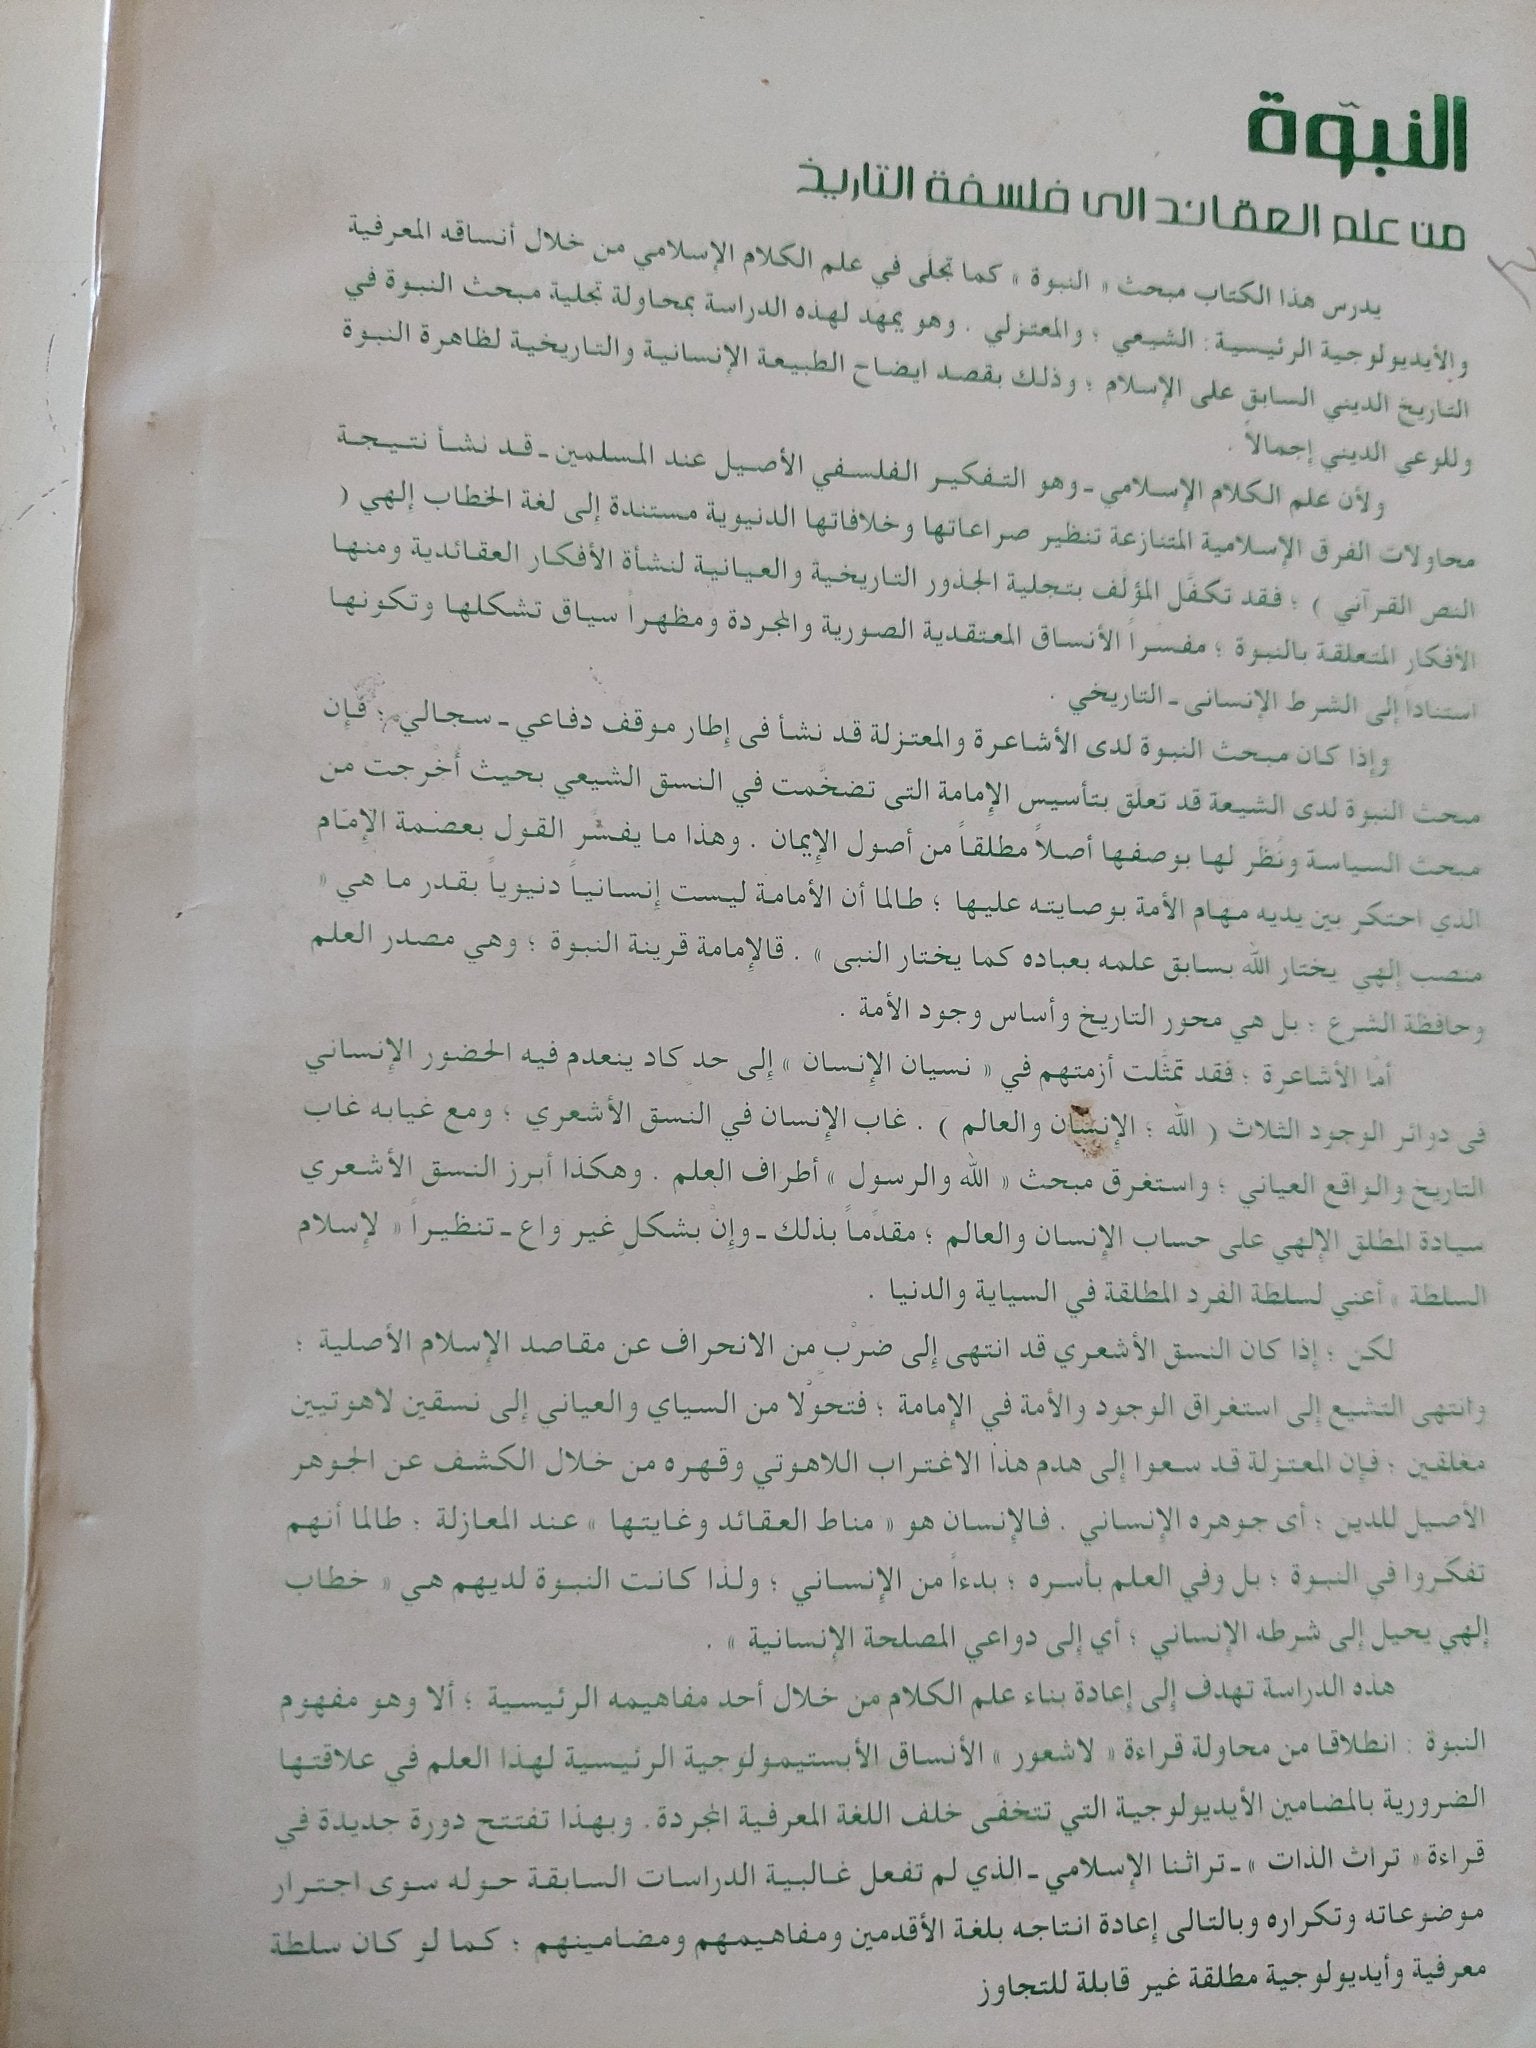 النبوّة
من علم العقائد الى فلسفة التاريخ
يدرس هذا الكتاب مبحث « النبوة » كما تجلَى في علم الكلام الإسلامي من خلال أنساقه المعرفية
والأيديولوجية الرئيسية : الشيعي ؛ والمعتزلي . وهو يمهّد لهذه الدراسة بمحاولة تجلية مبحث النبوة في
التاريخ الديني السابق على الإسلام ؛ وذلك بقصد ايضاح الطبيعة الإنسانية والتاريخية لظاهرة النبوة
وللوعي الديني إجمالاً .
ولأن علم الكلام الإسلامي ـ وهو التفكير الفلسفي الأصيل عند المسلمين ـ قد نشأ نتيجة
محاولات الفرق الإسلامية المتنازعة تنظير صراعاتها وخلافاتها الدنيوية مستندة إلى لغة الخطاب إلهي (
النص القرآني ) ؛ فقد تكفَّل المؤلَف بتجلية الجذور التاريخية والعيانية لنشأة الأفكار العقائدية ومنها
الأفكار المتعلقة بالنبوة ؛ مفسراً الأنساق المعتقدية الصورية والمجردة ومظهراً سياق تشكلها وتكونها
استناداً إلى الشرط الإنسانى ـ التاريخي .
وإذا كان مبحث النبوة لدى الأشاعرة والمعتزلة قد نشأ فى إطار موقف دفاعي ـ سجالي ؛ فإن
مبحث النبوة لدى الشيعة قد تعلَق بتأسيس الإمامة التى تضخَّمت في النسق الشيعي بحيث أُخْرجت من
مبحث السياسة ونُظَر لها بوصفها أصلاً مطلقاً من أصول الإيمان . وهذا ما يفسَّر القول بعصمة الإمام
الذي احتكر بين يديه مهام الأمة بوصايته عليها ؛ طالما أن الأمامة ليست إنسانياً دنيوياً بقدر ما هي «
منصب إلهي يختار الله بسابق علمه بعباده كما يختار النبى » . قالإمامة قرينة النبوة ؛ وهي مصدر العلم
وحافظة الشرع ؛ بل هي محور التاريخ وأساس وجود الأمة .
أما الأشاعرة ؛ فقد تمثَّلت أزمتهم في « نسيان الإنسان » إلى حد كاد ينعدم فيه الحضور الإنساني
فى دوائر الوجود الثلاث ( الله ؛ الإنسان والعالم ) . غاب الإنسان في النسق الأشعري ؛ ومع غيابه غاب
التاريخ والواقع العياني ؛ واستغرق مبحث « الله والرسول » أطراف العلم . وهكذا أبرز النسق الأشعري
سيادة المطلق الإلهي على حساب الإنسان والعالم ؛ مقدمًاً بذلك ـ وإنْ بشكلٍ غير واع ـ تنظيراً « لإسلام
السلطة » أعني لسلطة الفرد المطلقة في السياية والدنيا .
لكن ؛ إذا كان النسق الأشعري قد انتهى إلى ضرْب من الانحراف عن مقاصد الإسلام الأصلية ؛
وانتهى التشيع إلى استغراق الوجود والأمة في الإمامة ؛ فتحوْلا من السياي والعياني إلى نسقين لاهوتيين
مغلقين ؛ فإن المعتزلة قد سعوا إلى هدم هذا الاغتراب اللاهوتي وقهره من خلال الكشف عن الجوهر
الأصيل للدين ؛ أى جوهره الإنساني . فالإنسان هو « مناط العقائد وغايتها » عند المعازلة ؛ طالما أنهم
تفكروا في النبوة ؛ بل وفي العلم بأسره ؛ بدءاً من الإنساني ؛ ولذا كانت النبوة لديهم هي « خطاب
إلهي يحيل إلى شرطه الإنساني ؛ أي إلى دواعي المصلحة الإنسانية » .
هذه الدراسة تهدف إلى إعادة بناء علم الكلام من خلال أحد مفاهيمه الرئيسية ؛ ألا وهو مفهوم
النبوة : انطلاقا من محاولة قراءة « لاشعور » الأنساق الأبستيمولوجية الرئيسية لهذا العلم في علاقتها
الضرورية بالمضامين الأيديولوجية التي تتخفى خلف اللغة المعرفية المجردة. وبهذا تفتتح دورة جديدة في
قراءة « تراث الذات » ـ تراثنا الإسلامي ـ الذي لم تفعل غالبية الدراسات السابقة حوله سوى اجترار
موضوعاته وتكراره وبالتالى إعادة انتاجه بلغة الأقدمين ومفاهيمهم ومضامينهم ؛ كما لو كان سلطة
معرفية وأيديولوجية مطلقة غير قابلة للتجاوز